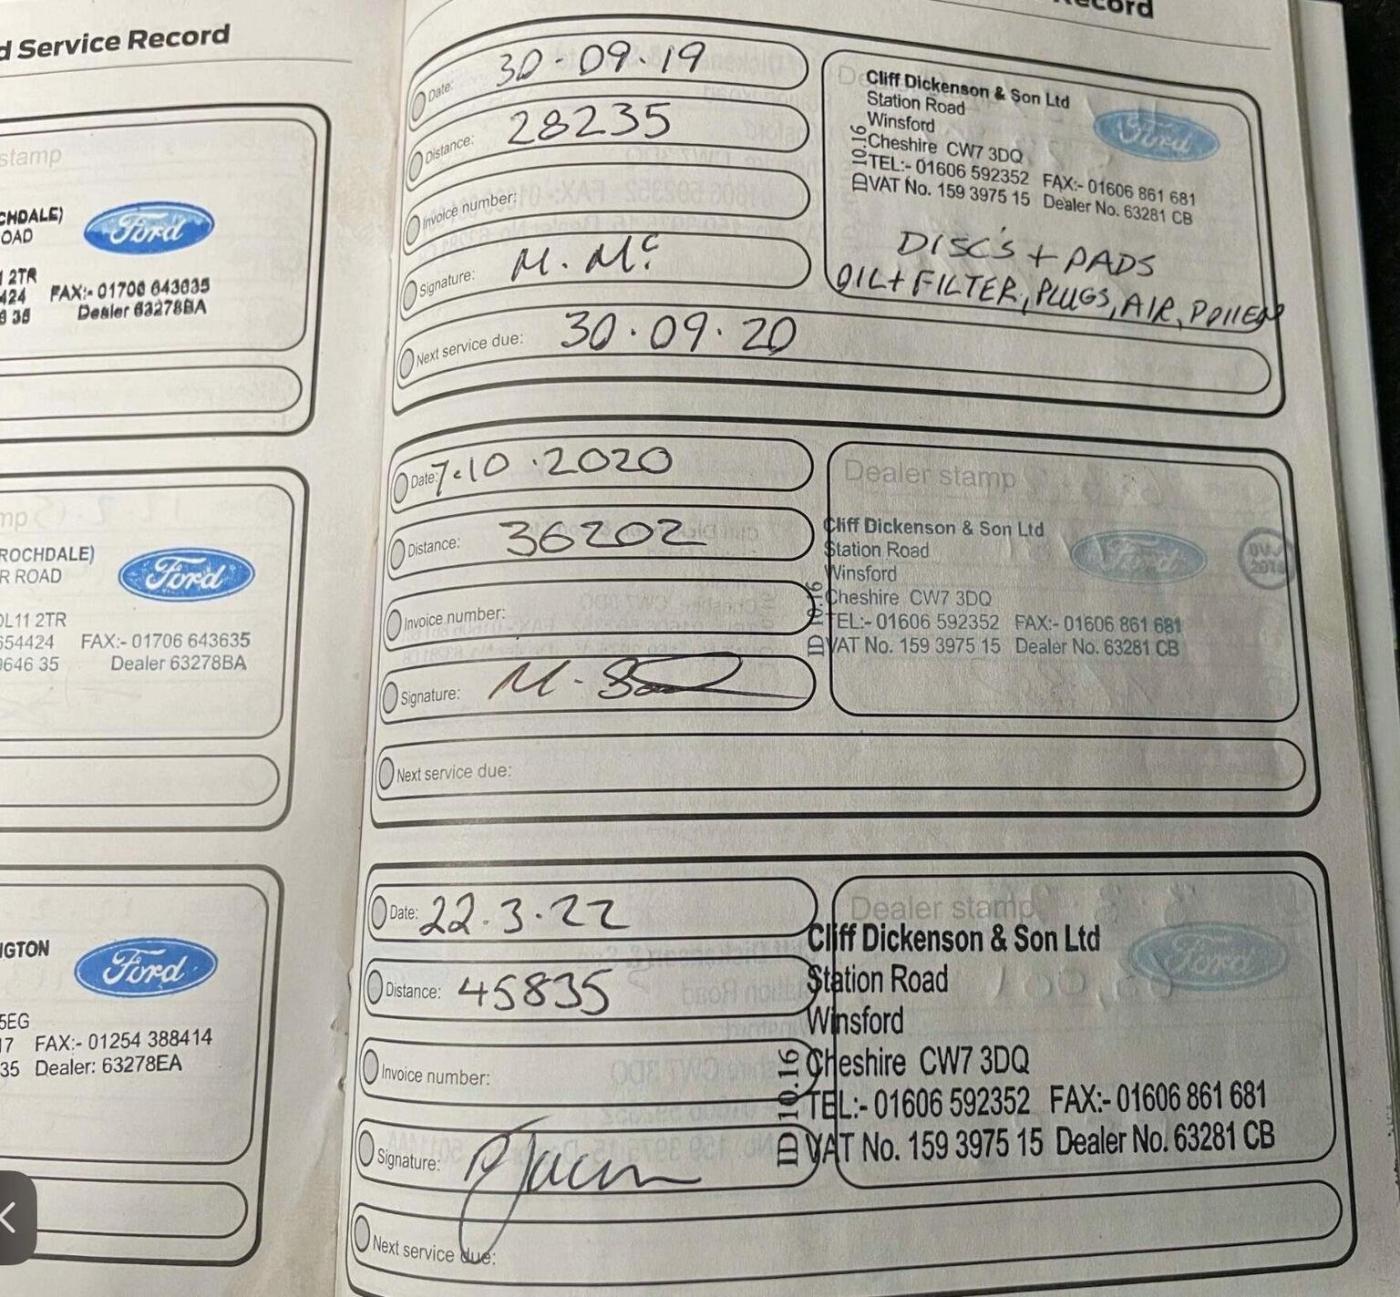 d Service Record
stamp
CHDALE)
OAD
Ford
2TR
424 FAX:- 01706 643635
6 35 Dealer 63278BA
mp
ROCHDALE)
R ROAD
Ford
OL11 2TR
654424 FAX:- 01706 643635
9646 35 Dealer 63278BA
NGTON
Ford
5EG
17 FAX:- 01254 388414
35 Dealer: 63278EA
Record
Date: 30.09.19
Distance: 28235
Invoice number:
Signature: M. Mc
Next service due: 30.09.20
Cliff Dickenson & Son Ltd
Station Road
Winsford
Cheshire CW7 3DQ
TEL:- 01606 592352 FAX:- 01606 861 681
VAT No. 159 3975 15 Dealer No. 63281 CB
ID 10.16
Ford
DISC'S + PADS
OIL + FILTER, PLUGS, AIR, POLLEN
Date: 7.10.2020
Distance: 36202
Invoice number:
Signature: M.
Next service due:
Dealer stamp
Cliff Dickenson & Son Ltd
Station Road
Winsford
Cheshire CW7 3DQ
TEL:- 01606 592352 FAX:- 01606 861 681
VAT No. 159 3975 15 Dealer No. 63281 CB
ID 10.16
Ford
Date: 22.3.22
Distance: 45835
Invoice number:
Signature:
Next service due:
Dealer stamp
Cliff Dickenson & Son Ltd
Station Road
Winsford
Cheshire CW7 3DQ
TEL:- 01606 592352 FAX:- 01606 861 681
VAT No. 159 3975 15 Dealer No. 63281 CB
ID 10.16
Ford